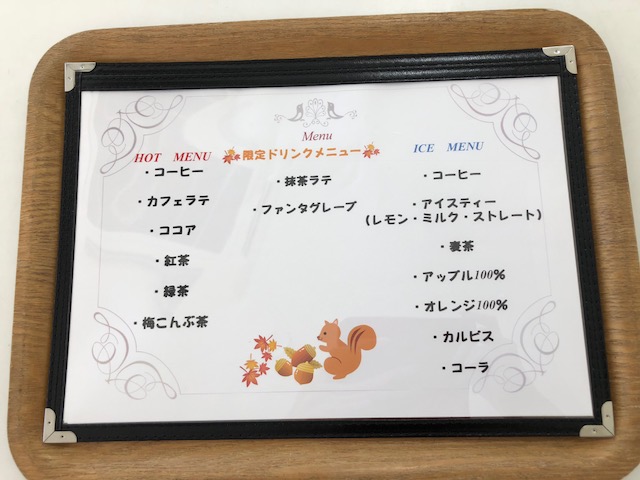 Menu
HOT MENU
・コーヒー
・カフェラテ
・ココア
・紅茶
・緑茶
・梅こんぶ茶
限定ドリンクメニュー
・抹茶ラテ
・ファンタグレープ
ICE MENU
・コーヒー
・アイスティー
(レモン・ミルク・ストレート)
・麦茶
・アップル100%
・オレンジ100%
・カルピス
・コーラ